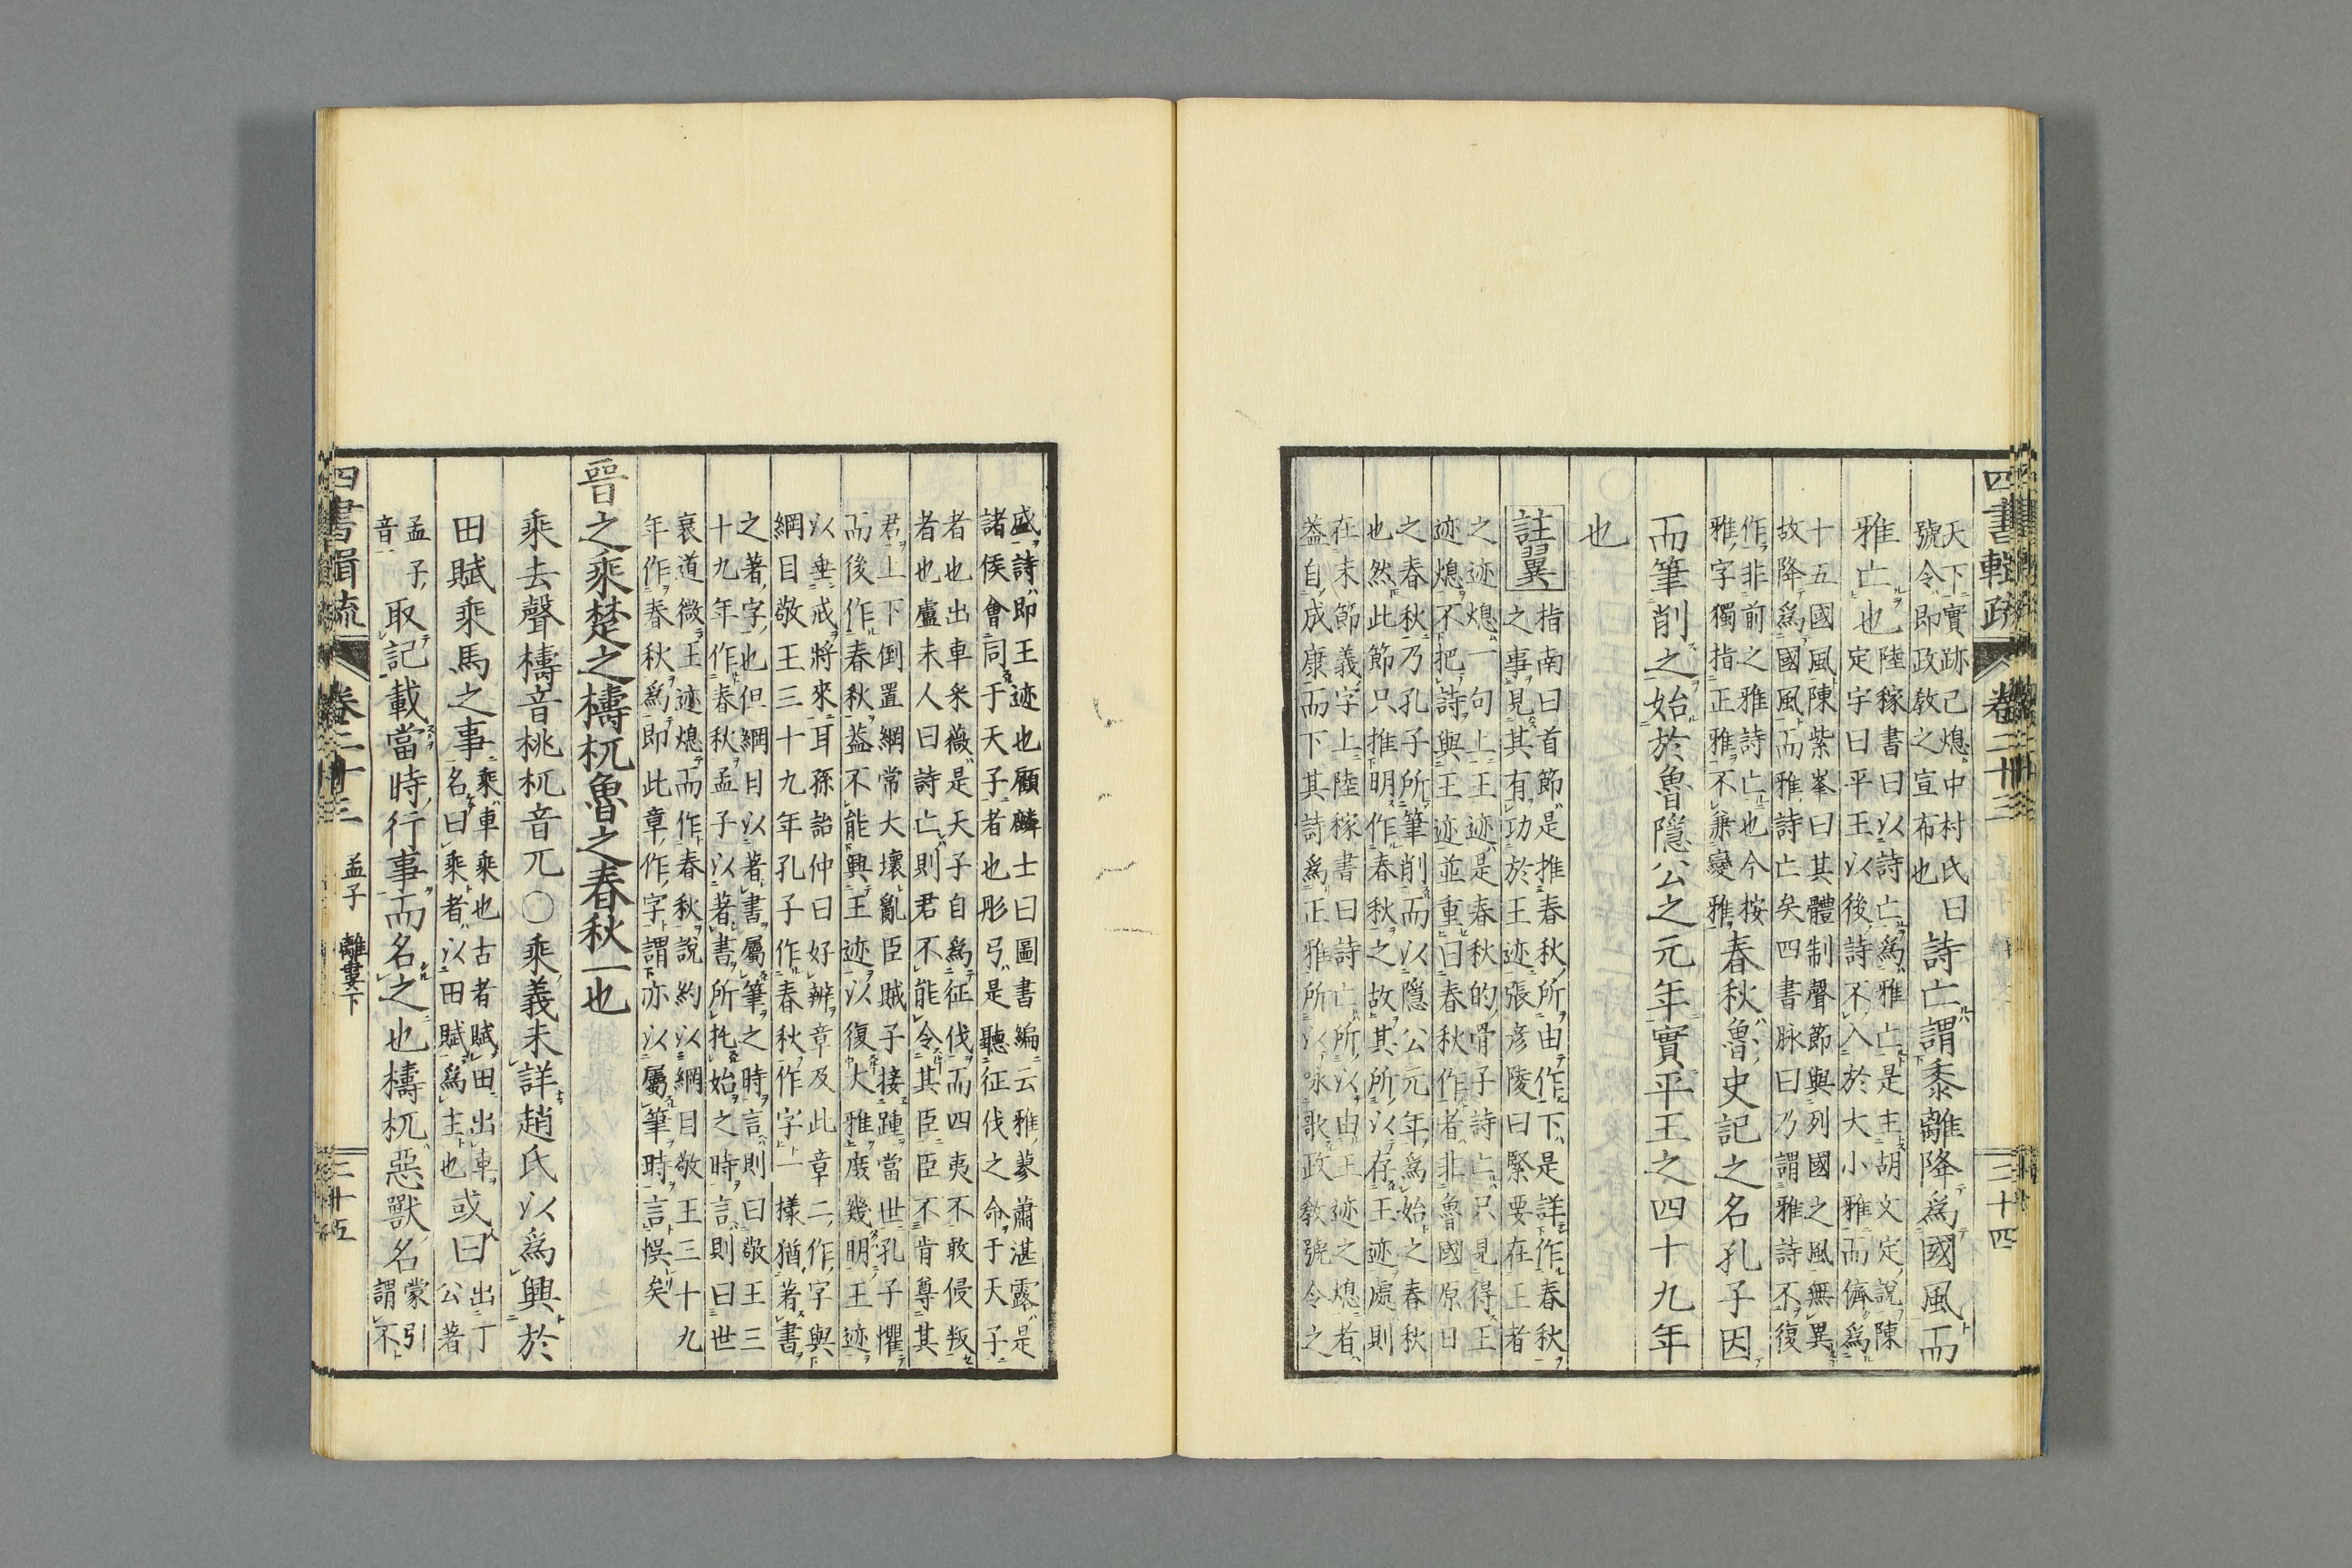 四書輯疏 卷二十三 二十四
天下實跡已熄中村氏曰詩亡謂黍離降爲國風而
號令即政教之宣布也
雅亡也陸稼書曰以詩亡爲雅亡是主胡文定說陳
定字曰平王以後詩不入於大小雅而儕爲
十五國風陳紫峯曰其體制聲節與列國之風無異
故降爲國風而雅詩亡矣四書脉曰乃謂雅詩不復
作非前之雅詩亡也今按春秋魯史記之名孔子因
雅字獨指正雅不兼變雅
而筆削之始於魯隱公之元年實平王之四十九年
也
註翼
指南曰首節是推春秋所由作下是詳作春秋
之事見其有功於王迹張彦陵曰緊要在王者
之迹熄一句上王迹是春秋的骨子詩亡只見得王
迹熄不把詩與王迹並重曰春秋作者非魯國原日
之春秋乃孔子所筆削而以隱公元年爲始之春秋
也然此節只推明作春秋之故其所以存王迹處則
在末節義字上陸稼書曰詩亡所以由王迹之熄者
蓋自成康而下其詩爲正雅所以咏歌政教號令之
盛詩即王迹也顧麟士曰圖書編云雅蓼蕭湛露是
諸侯會同于天子者也彤弓是聽征伐之命于天子
者也出車采薇是天子自爲征伐而四夷不敢侵叛
者也盧未人曰詩亡則君不能令其臣臣不肯尊其
君上下倒置綱常大壞亂臣賊子接踵當世孔子懼
而後作春秋蓋不能興王迹以復大雅庻幾明王迹
以垂戒將來耳孫詒仲曰好辨章及此章二作字與
綱目敬王三十九年孔子作春秋作字一樣猶著書
之著字也但綱目以著書屬筆之時言則曰敬王三
十九年作春秋孟子以著書所托始之時言則曰世
衰道微王迹熄而作春秋說約以綱目敬王三十九
年作春秋爲即此章作字謂亦以屬筆時言悞矣
晉之乘楚之檮杌魯之春秋一也
乘去聲檮音桃杌音兀○乘義未詳趙氏以爲興於
田賦乘馬之事乘車乘也古者賦田出車或曰出丁
名曰乘者以田賦爲主也公著
孟子取記載當時行事而名之也檮杌惡獸名蒙引
音謂不
四書輯疏 卷二十三 孟子 離婁下 二十五